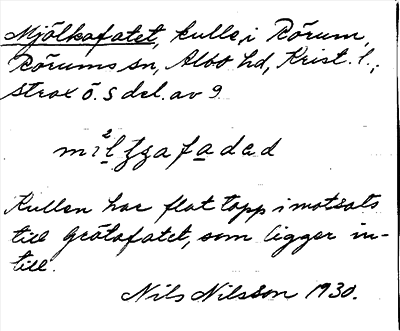 Mjölkafatet, kulle, i Rörum,
Rörums sn, Albo hd, Krist. l.;
strax ö. s del. av 9

Kullen har flat topp i motsats
till Grötafatet, som ligger in-
till.
Nils Nilsson 1930.